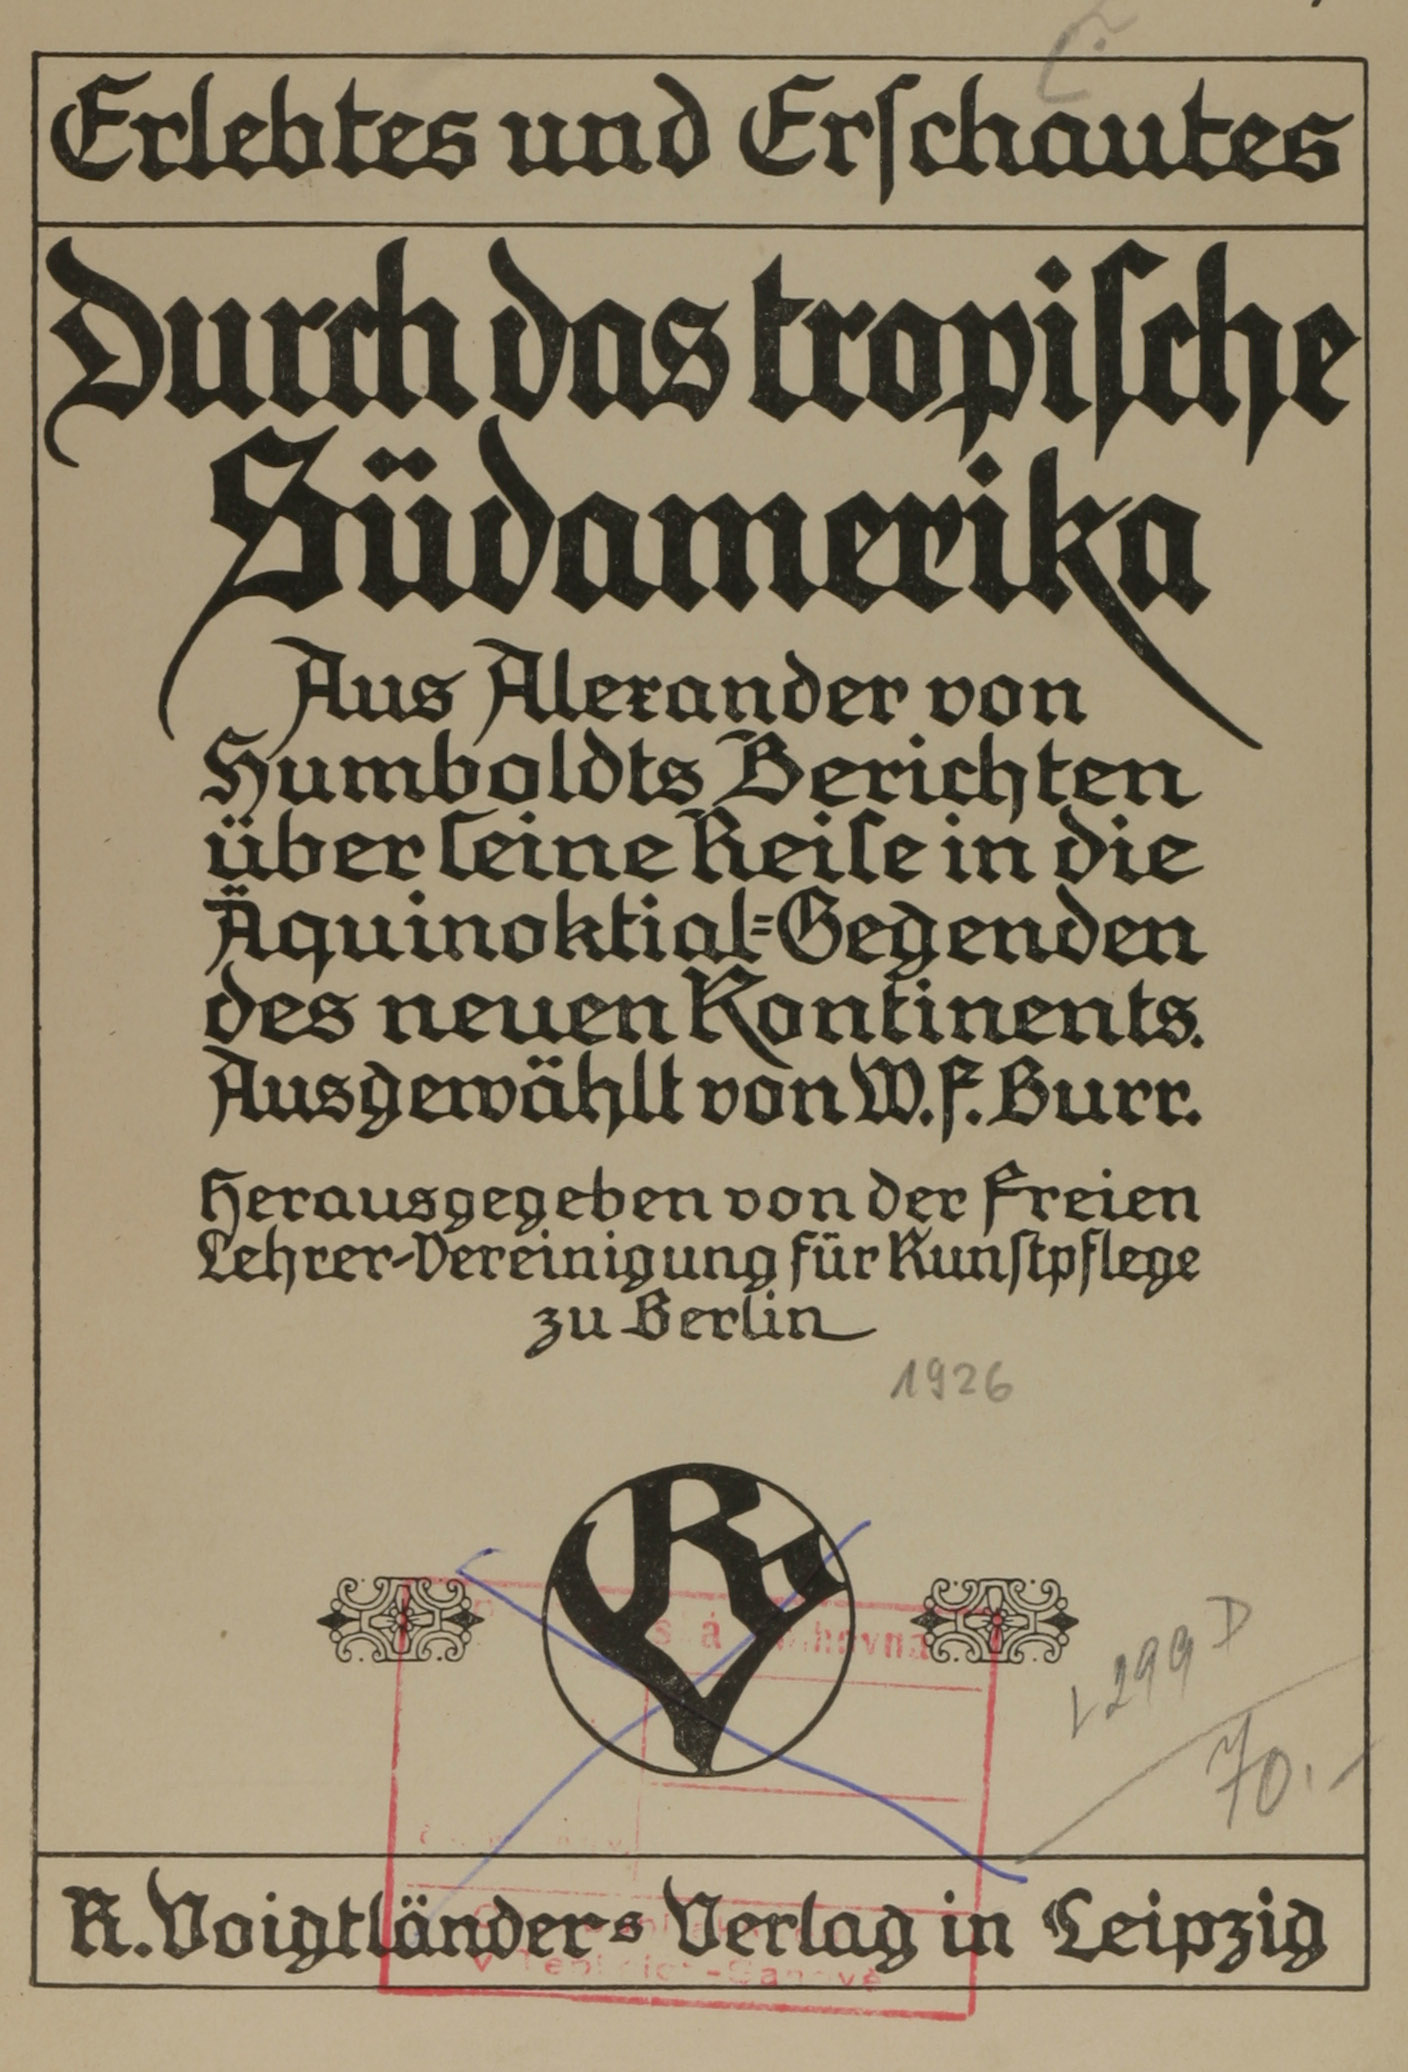 Erlebtes und Erschautes
Durch das tropische
Südamerika
Aus Alexander von
Humboldts Berichten
über seine Reise in die
Äquinoktial=Gegenden
des neuen Kontinents.
Ausgewählt von W. F. Burr.
Herausgegeben von der Freien
Lehrer-Vereinigung für Kunstpflege
zu Berlin
1926
RV
299 D
70.-
R. Voigtländers Verlag in Leipzig